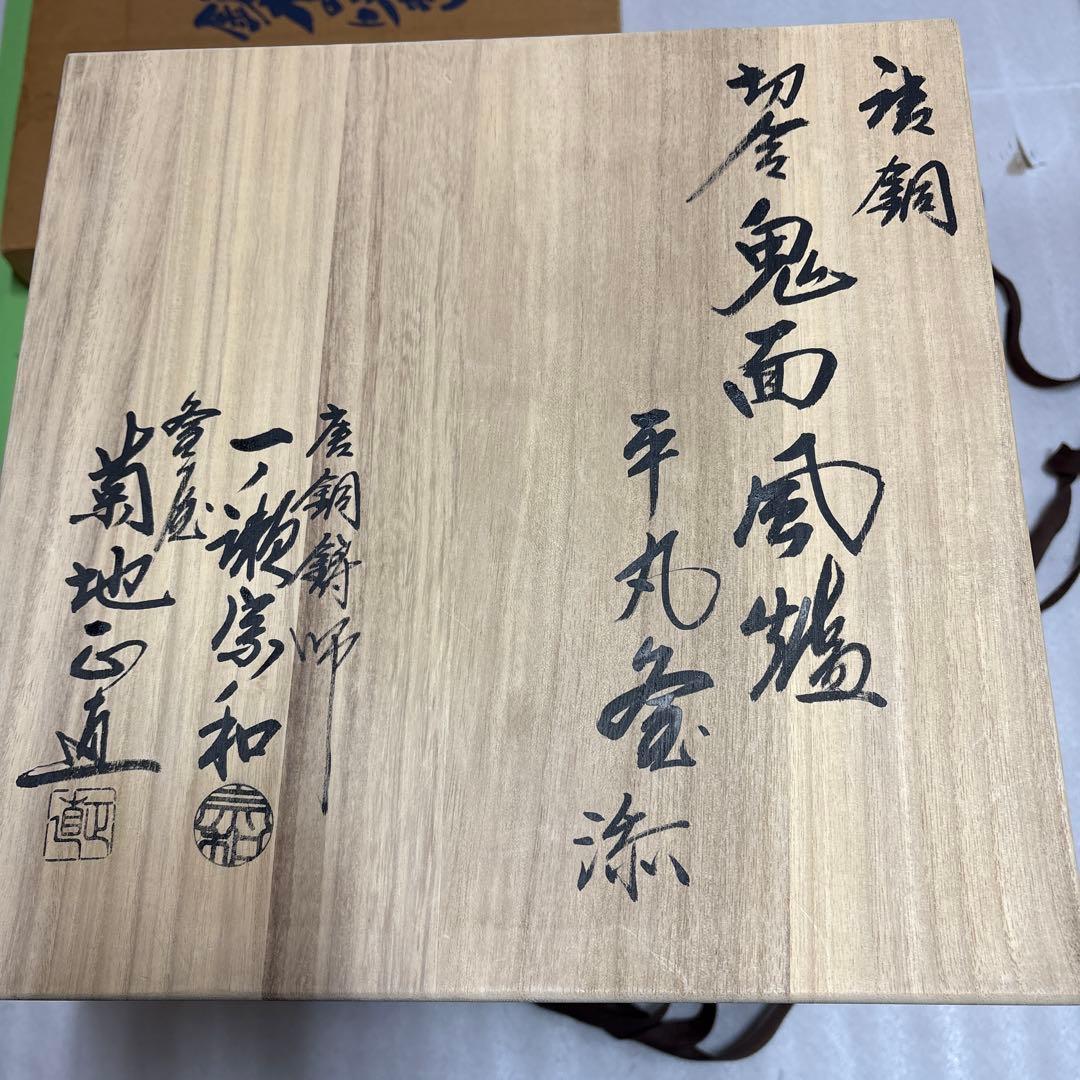 唐銅
切合鬼面風爐
平丸釜添
唐銅鋳師
一ノ瀬宗和
釜屋
菊地正直
正直